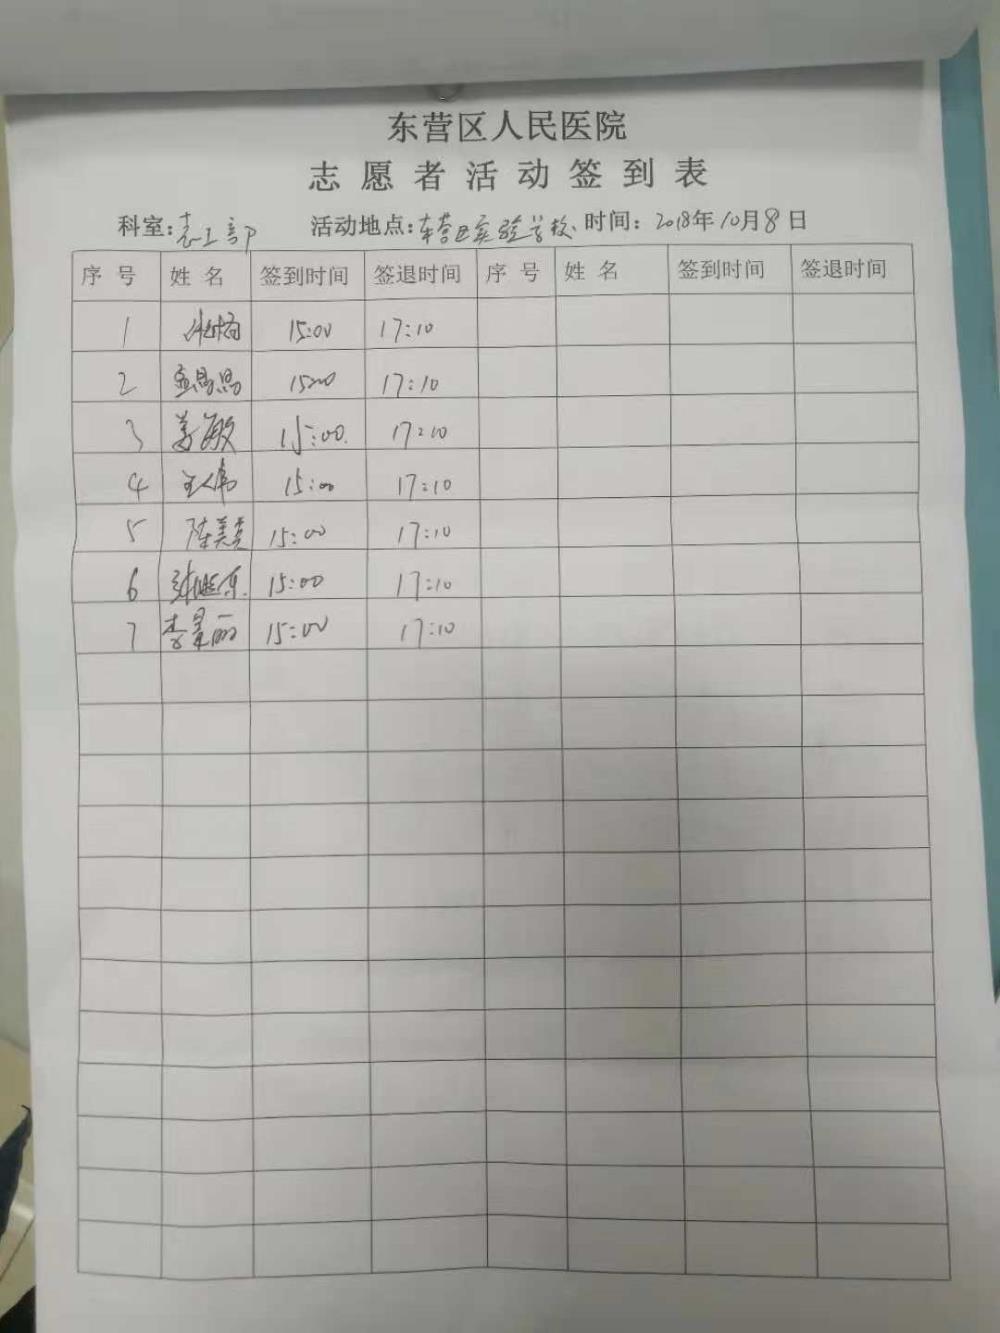 东营区人民医院
志愿者活动签到表
科室:志工部 活动地点:东营区实验学校 时间:2018年10月8日
序号 姓名 签到时间 签退时间 序号 姓名 签到时间 签退时间
1 15:00 17:10
2 15:00 17:10
3 姜敏 15:00 17:10
4 15:00 17:10
5 陈美真 15:00 17:10
6 15:00 17:10
7 李景丽 15:00 17:10